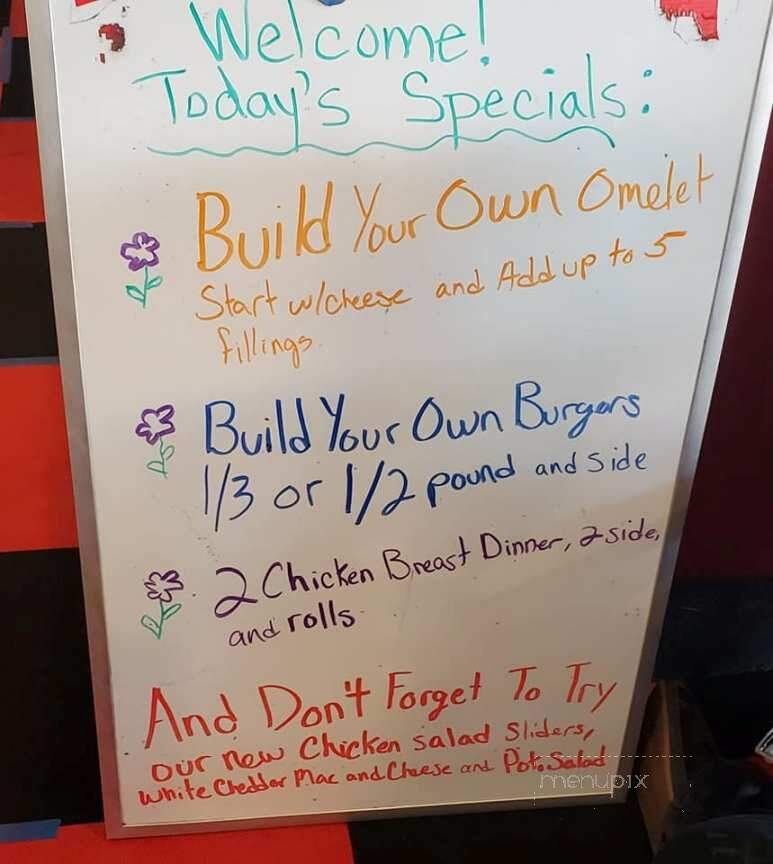 Welcome!
Today's Specials:
Build Your Own Omelet
Start w/cheese and Add up to 5
fillings.
Build Your Own Burgers
1/3 or 1/2 pound and side
2 Chicken Breast Dinner, 2 side,
and rolls
And Don't Forget To Try
our new Chicken salad Sliders,
White Cheddar Mac and Cheese and Pot. Salad
menupix